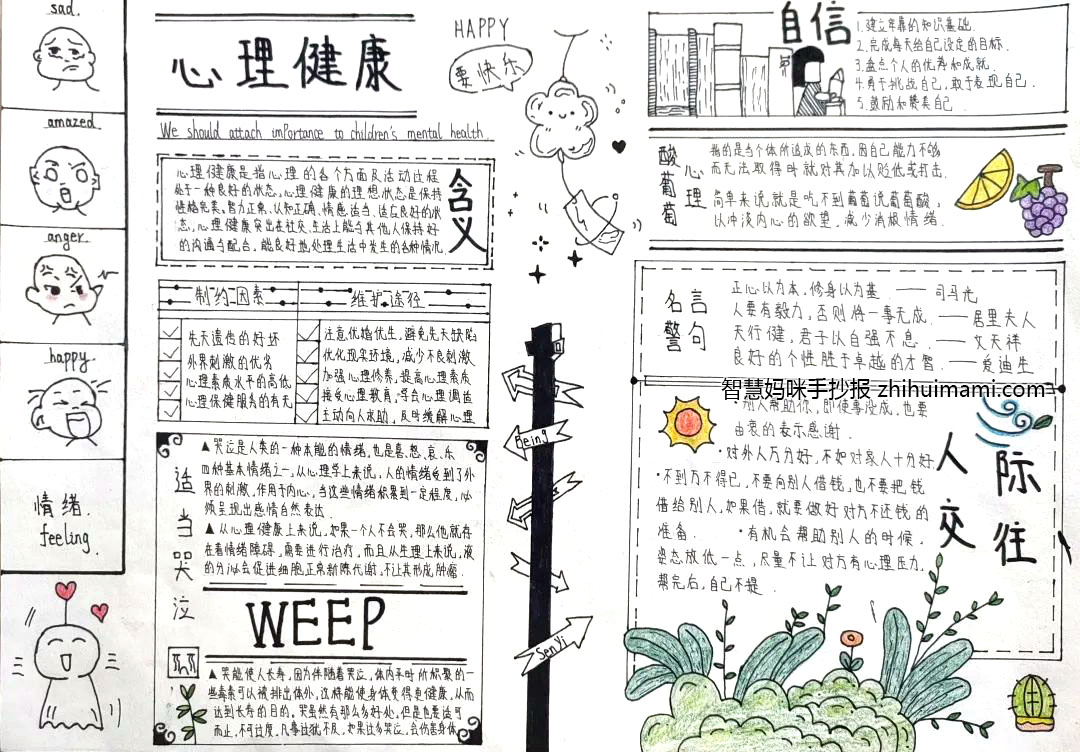 sad.
amazed.
anger.
happy.
情绪.
feeling.
心理健康
We should attach importance to children's mental health.
含义
心理健康是指心理的各个方面及活动过程
处于一种良好的状态。心理健康的理想状态是保持
性格完美、智力正常、认知正确、情感适当、
态,心理健康突出在社交、生活上能与其他人保持好
的沟通与配合,能良好地处理生活中发生的各种情况.
制约因素
先天遗传的好坏
外界刺激的优劣
心理素质水平的高低
心理保健服务的有无
维护途径
注意优婚优生,避免先天缺陷
优化现实环境,减少不良刺激
加强心理修养,提高心理素质
接受心理教育,学会心理调适
主动向人求助,及时缓解心理
适当哭泣
▲哭泣是人类的一种本能的情绪,也是喜、怒、哀、乐
四种基本情绪之一,从心理学上来说,人的情绪受到了外
界的刺激,作用于内心,当这些情绪积累到一定程度,必
须呈现出感情自然表达.
▲从心理健康上来说,如果一个人不会哭,那么他就存
在着情绪障碍,需要进行治疗,而且从生理上来说,液
的分泌会促进细胞正常新陈代谢,不让其形成肿瘤.
WEEP
▲哭能使人长寿,因为伴随着哭泣,体内平时所积聚的一
些毒素可以被排出体外,这样能使身体变得更健康,从而
达到长寿的目的。哭虽然有那么多好处,但是也要适可
而止,不可过度,凡事过犹不及,如果过多哭泣,会伤害身体
HAPPY
要快乐
Being
Senyi
自信
1.建立牢靠的知识基础.
2.完成每天给自己设定的目标.
3.盘点个人的优势和成就.
4.勇于挑战自己,敢于表现自己.
5.鼓励和赞美自己.
酸葡萄心理
指的是当个体所追成的东西,因自己能力不够
而无法取得时就对其加以贬低或打击.
简单来说就是吃不到葡萄说葡萄酸,
以冲淡内心的欲望,减少消极情绪.
名言警句
正心以为本,修身以为基.——司马光
人要有毅力,否则将一事无成.——居里夫人
天行健,君子以自强不息.——文天祥
良好的个性胜于卓越的才智.——爱迪生
智慧妈咪手抄报 zhihuimami.com
人际交往
·别人帮助你,即使事没成,也要
由衷的表示感谢.
·对外人万分好,不如对家人十分好
·不到万不得已,不要向别人借钱,也不要把钱
借给别人,如果借,就要做好对方不还钱的
准备. ·有机会帮助别人的时候,
姿态放低一点,尽量不让对方有心理压力,
帮完后,自己不提.